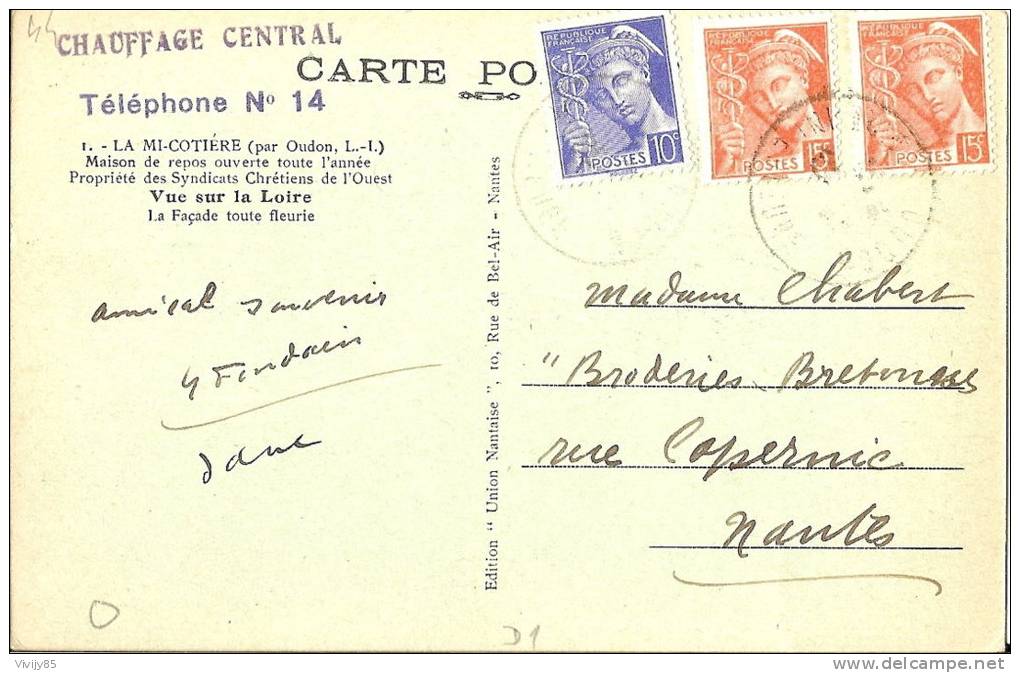 44
CHAUFFAGE CENTRAL
Téléphone Nº 14
CARTE PO
1. - LA MI-COTIÉRE (par Oudon, L.-I.)
Maison de repos ouverte toute l'année
Propriété des Syndicats Chrétiens de l'Ouest
Vue sur la Loire
La Façade toute fleurie
amical souvenir
Edition " Union Nantaise ", 10, Rue de Bel-Air - Nantes
RÉPUBLIQUE
FRANÇAISE
10c
POSTES
RÉPUBLIQUE
FRANÇAISE
POSTES 15c
RÉPUBLIQUE
FRANÇAISE
POSTES 15c
Madame Chabert
"Broderies Bretonnes
rue Copernic
Nantes
D1
Vivijy85
delcampe.net